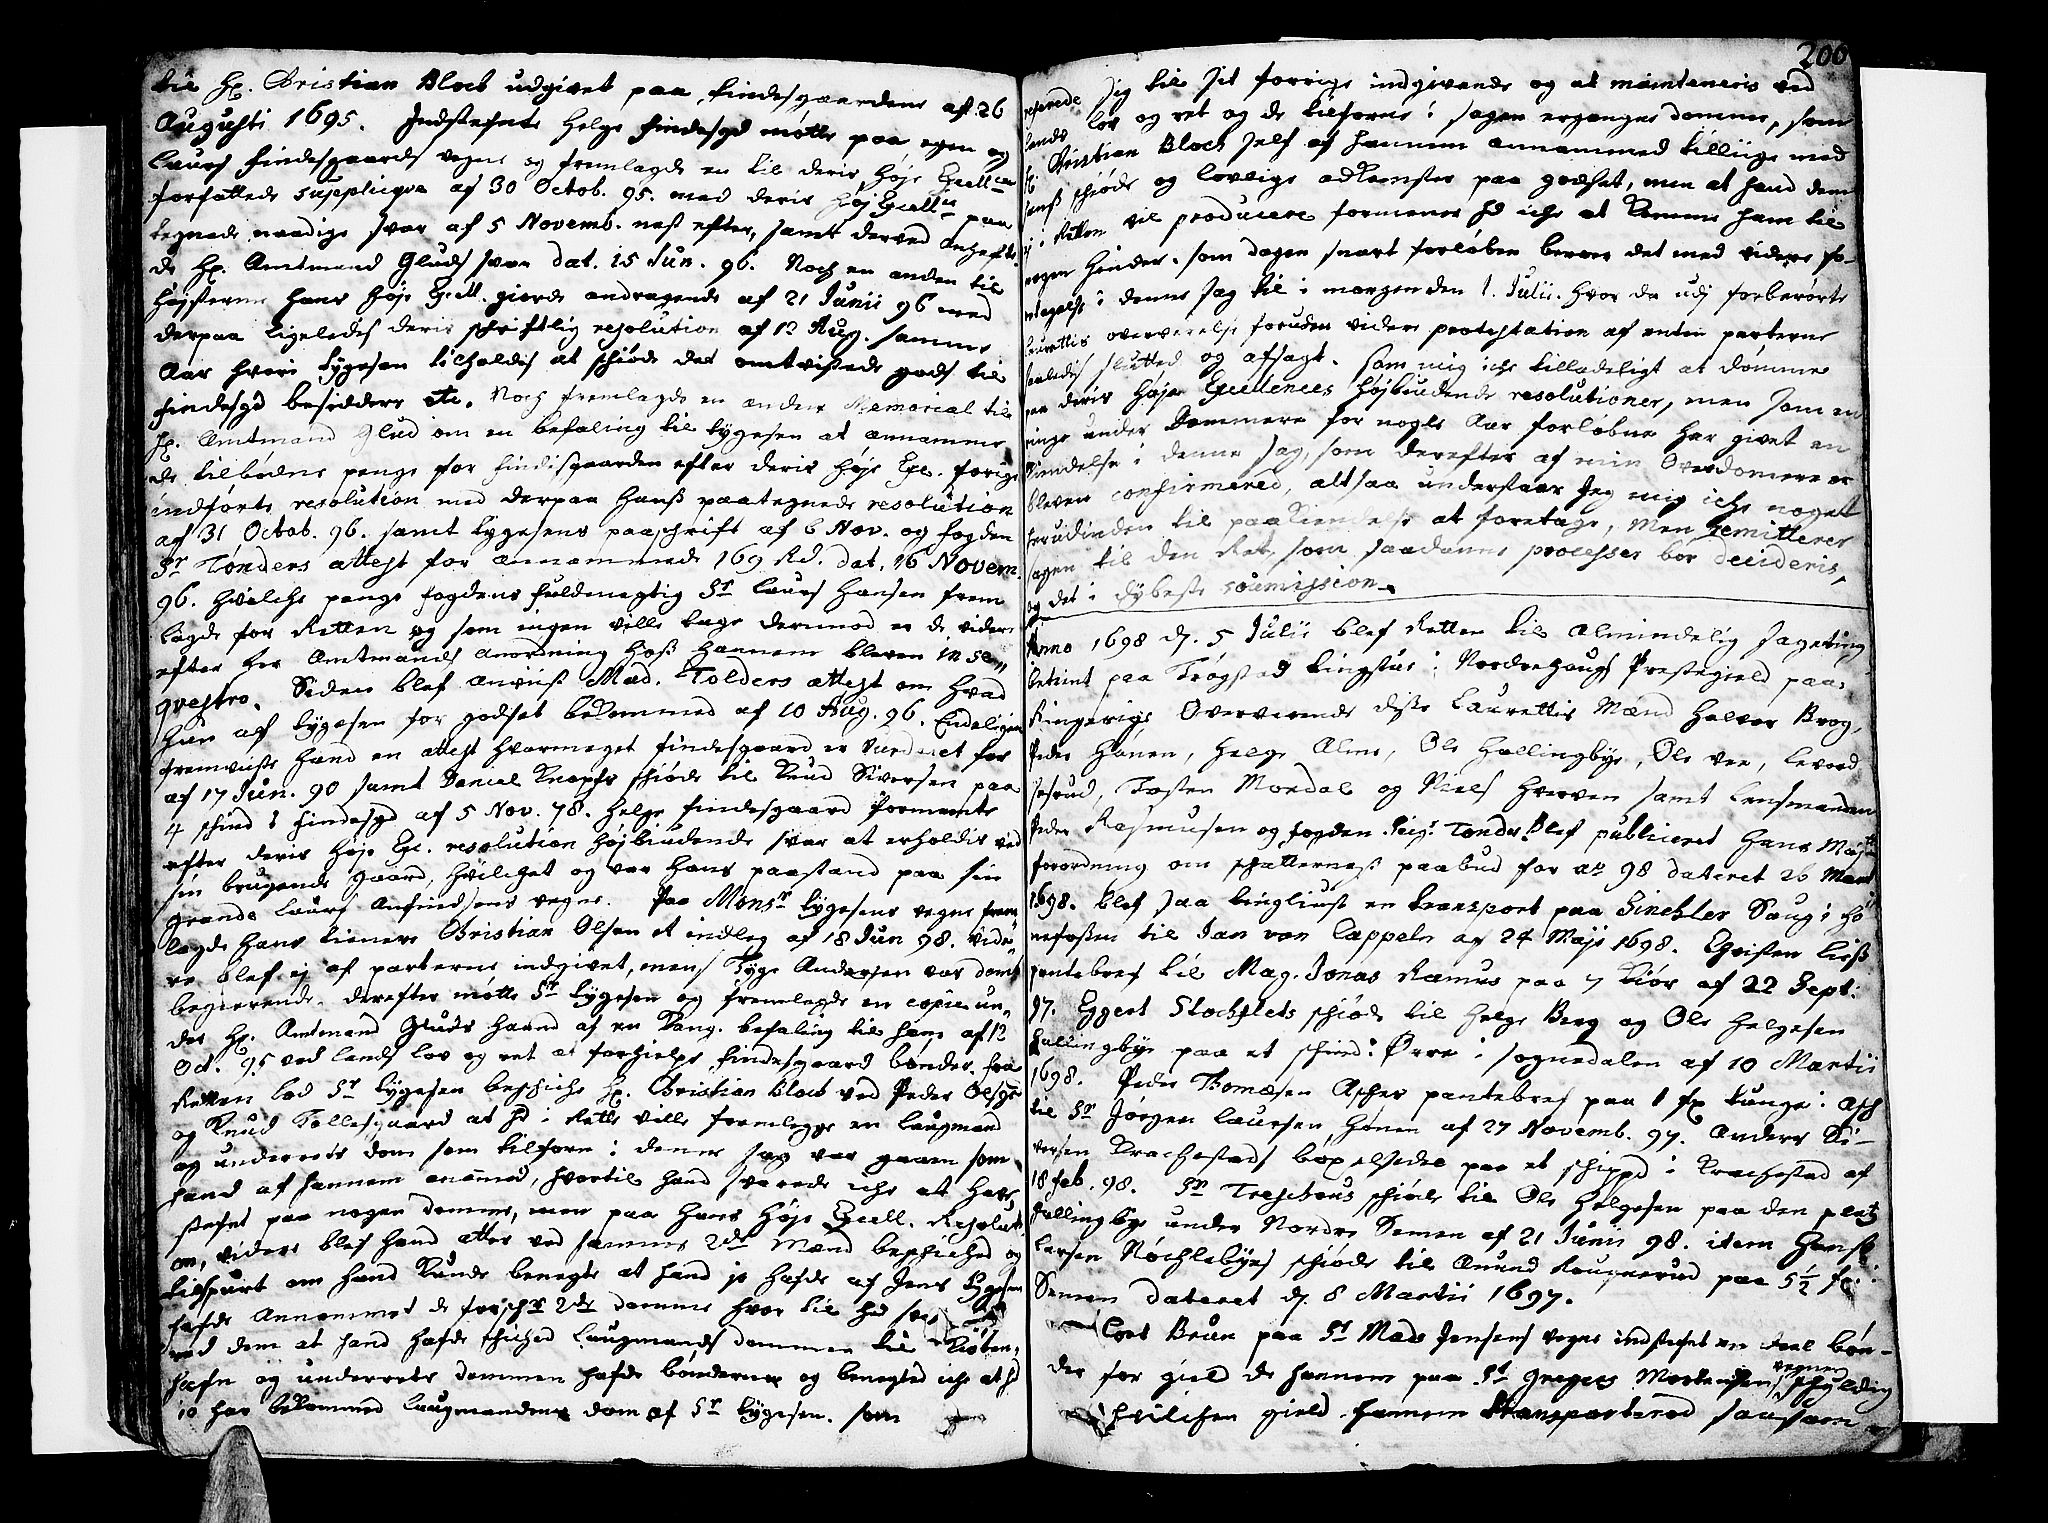 til Hr. Christian Block udgivet paa findesgaardene af 26
Augusti 1695. Indstefnte Helge Findesgd møtte paa egen og
Laurs Findesgaards vegne og fremlagde en til deris Høje Excellen
forfattede supplique af 30 Octob. 95. med deris Høj Excell paa
tegnede naadige svar af 5 Novemb. nest efter, samt derved anhefte
de Hr. Amtmand Gluds svar dat. 15 Jun. 96. Noch en anden til
højstærme hans Høje Excell. giorde andragende af 21 Junii 96 med
derpaa ligeledes deris schriftlig resolution af 12 Aug. samme
Aar hvori Lygesen tilholdis at schiøde det omtvistede gods til
findesgd besiddere etc. Noch fremlagde en anden Memorial til
Hr. Amtmand Glud om en befaling til Lygesen at annamme
de tilbudne penge for Findisgaarden efter deris Høje Exc. forige
indførte resolution med derpaa hans paategnede resolution
af 31 Octob. 96. samt Lygesens paaschrift af 6 Nov. og fogden
Sr Tonders attest for annammede 169 Rd. dat. 16 Novem.
96. hvilche penge fogdens fuldmegtig Sr Laurs Hansen frem
lagde for Retten og som ingen ville tage dermod er de videre
efter Her Amtmands anordning hos hannem bleven in se-
qvestro. Siden blef anvist Mad. Tolders attest om hvad
hun af Lygesen for godset bekommed af 10 Aug. 96. Endeligen
fremviste hand en attest hvormeget findesgaard er vurderet for
af 17 Jun. 90 samt Daniel Knophs schiøde til Knud Siversen paa
4 schind i findesgd af 5 Nov. 78. Helge findesgaard formente
efter deris Høje Exc. resolution højbiudende svar at erholdis ved
sin brugende gaard, hvilchet og var hans paastand paa sin
grande Laurs Anfindsens vegne. Paa Monsr Lygesens vegne frem
lagde hans tienere Christian Olsen et indleg af 18 Jun 98. vide-
re blef ej af parterne indgivet, mens Tyge Andersen var domb
begierende. derefter møtte Sr Lygesen og fremlagde en copie un-
der Hr. Amtmand Gluds haand af en Kong. befaling til ham af 12
Oct. 95 ved lands lov og ret at forhielpe findesgaard bønder. fra
Retten lod Sr Lygesen beschiche Hr. Christian Block ved Peder Olsgd
og Knud Tollefsgaard at hd i Rette ville fremlegge en Laugmand
og underrets dom som tilforn i denne sag var gaaen som
hand af hannem anammed, hvortil hand svarede iche at have
stefnt paa nogen domme, men paa hans Høje Excell. Resoluti
on, videre blef hand atter ved samme 2de Mænd beschiched og
tilspurt om hand kunde benegte at hand jo hafde af Jens Lygesen
hafde annammed de forschr 2de domme hvor til hd sva
red dem at hand hafde schiched Laugmands dommen til Kiøben-
hafn og underrets dommen hafde bønderne og benegted iche at hd
jo har bekommed laugmandens dom af Sr Lygesen. som
200
refererede Jeg til sit forrige indgivende og at mainteneris ved
lands lov og ret og de tilforne i sagen erganges domme, som
Hr. Christian Block self af hannem annammed tilliige med
hans schiøde og lovlige adkomster paa godset, men at hand dem
ej i Retten vil producere formener hd iche at komme ham til
nogen hinder. som dagen snart forløben beroer det med videre fo-
retagelse i denne sag til i morgen den 1. Julii. hvor da udj forberørte
Laurettis overværelse foruden videre protestation af enten parterne
saaledis sluttet og afsagt. Som mig iche tilladeligt at dømme
paa deris Høje Excellences Højbiudende resolutioner, men som en
ringe under Dommere for nogle Aar forløbne har givet en
kiendelse i denne sag, som derefter af min Overdomere er
bleven confirmered, altsaa understaar Jeg mig iche noget
herudinden til paakiendelse at foretage, men Remitterer
sagen til den Ret, som saadanne processer bør decideris,
og det i dybeste soumission.
Anno 1698 d. 5 Julii blef Retten til almindelig sageting
betient paa Trøgstad tingstue i Norderhaugs Prestegield paa
Ringerige Overværende disse Laurettis Mænd Halvor Brog,
Peder Hønen, Helge Alme, Ole Hallingbye, Ole vee, Levord
sørud, Tosten Mordal og Niels Hverven samt Lensmanden
Peder Rasmusen og fogden Seigr Tonder. Blef publiceret Hans Majts
forordning om schatternes paabud for ao 98 dateret 26 Mart
1698. blef saa tingliust en transport paa Zinchler Saug i Hø
nefossen til Jan von Cappeln af 24 Maji 1698. Christen Lies
pantebref til Mag. Jonas Ramus paa 7 kiør af 22 Sept.
97. Eggert Stochflets schiøde til Helge Berg og Ole Helgesen
Hallingbye paa et schind i Ørre i sognedalen af 10 Martii
1698. Peder Thomæsen Aschers pantebref paa 1 fr tunge i Asch
til Sr Jørgen Laursen Hønen af 27 Novemb. 97. Anders Si-
versen Krachestads boxelsedel paa et schippd i Krachestad af
18 feb. 98. Sr Treschous schiøde til Ole Helgesen paa den plats
Hallingbye under Nordre Semen af 21 Junii 98. item Hans
Larsen Nøchlebyes schiøde til Amund Rougnerud paa 5½ fr i
Semen dateret d. 8 Martii 1697.
Cort Brun paa Sr Mads Jensens vegne indstefnt en deel bøn-
der for gield de hannem paa Sr Gregers Mortensens vegne schyldig
hvilchen gield hannem transporterod saasom